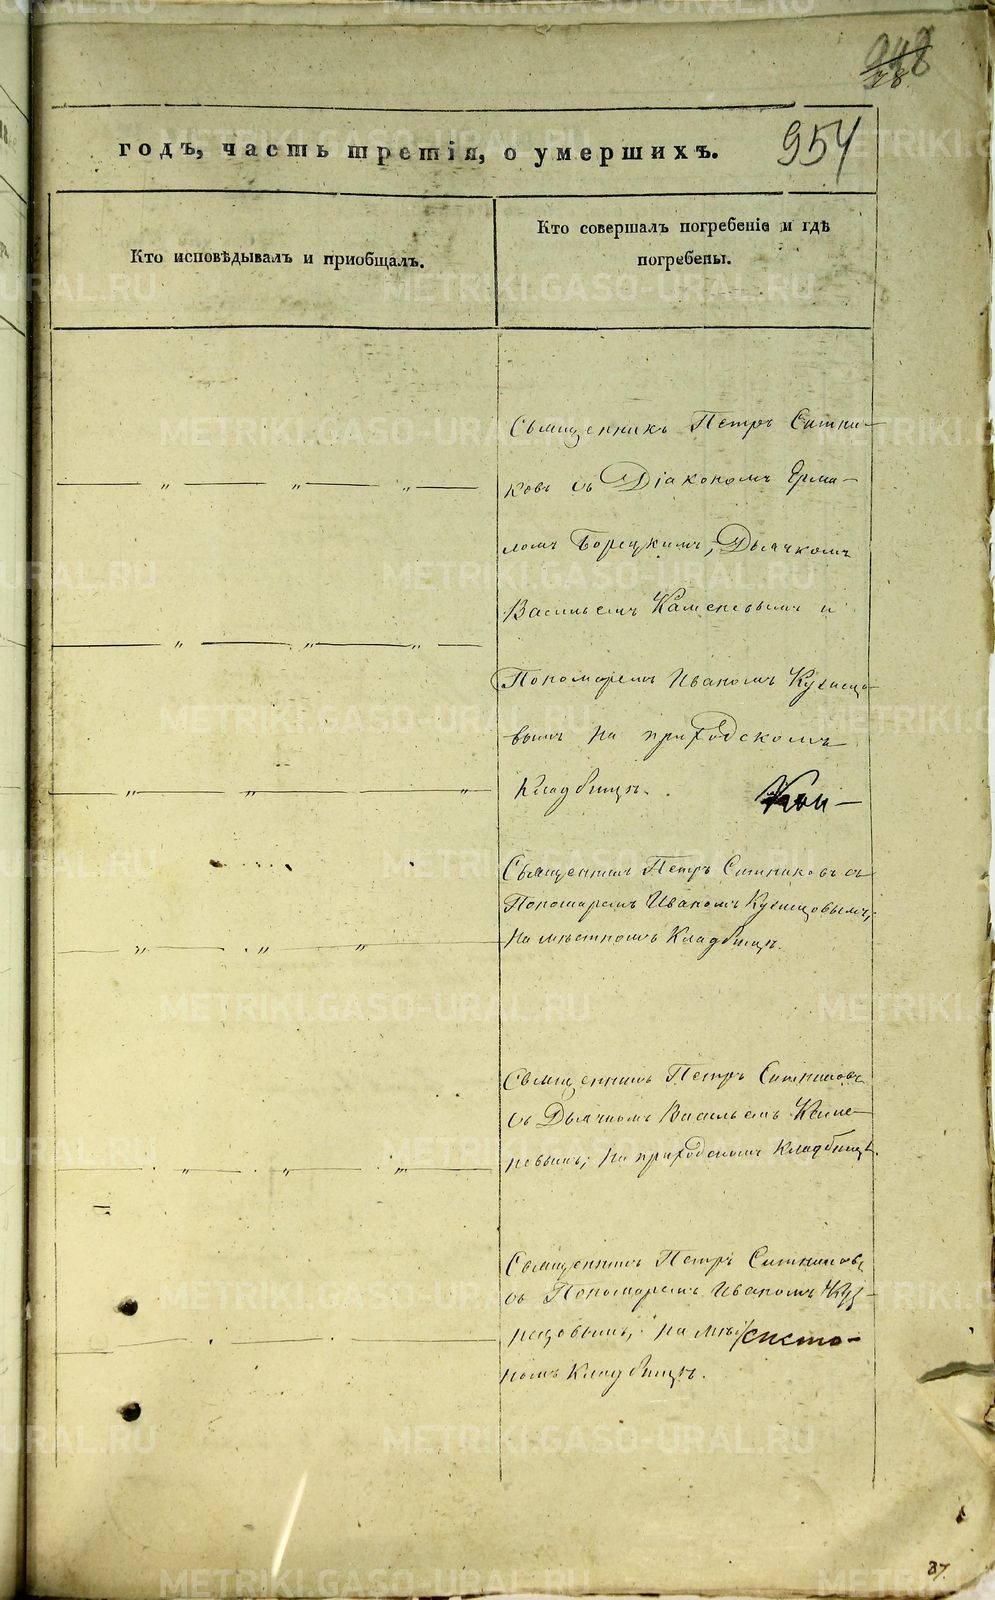 954
годъ, часть третія, о умершихъ.
Кто исповѣдывалъ и пріобщалъ.
Кто совершалъ погребеніе и гдѣ
погребены.
Священникъ Петръ Ситни-
ковъ съ Діакономъ Ерми-
ломъ Борецкимъ, Дьячкомъ
Васильемъ Каменевымъ и
Пономаремъ Иваномъ Кузнецо-
вымъ на приходскомъ
Кладбищѣ.
Священникъ Петръ Ситниковъ съ
Пономаремъ Иваномъ Кузнецовымъ,
на мѣстномъ Кладбищѣ.
Священникъ Петръ Ситниковъ
съ Дьячкомъ Васильемъ Каме-
невымъ, на приходскомъ Кладбищѣ.
Священникъ Петръ Ситниковъ
съ Пономаремъ Иваномъ Куз-
нецовымъ, на
номъ Кладбищѣ.
37.
METRIKI.GASO-URAL.RU